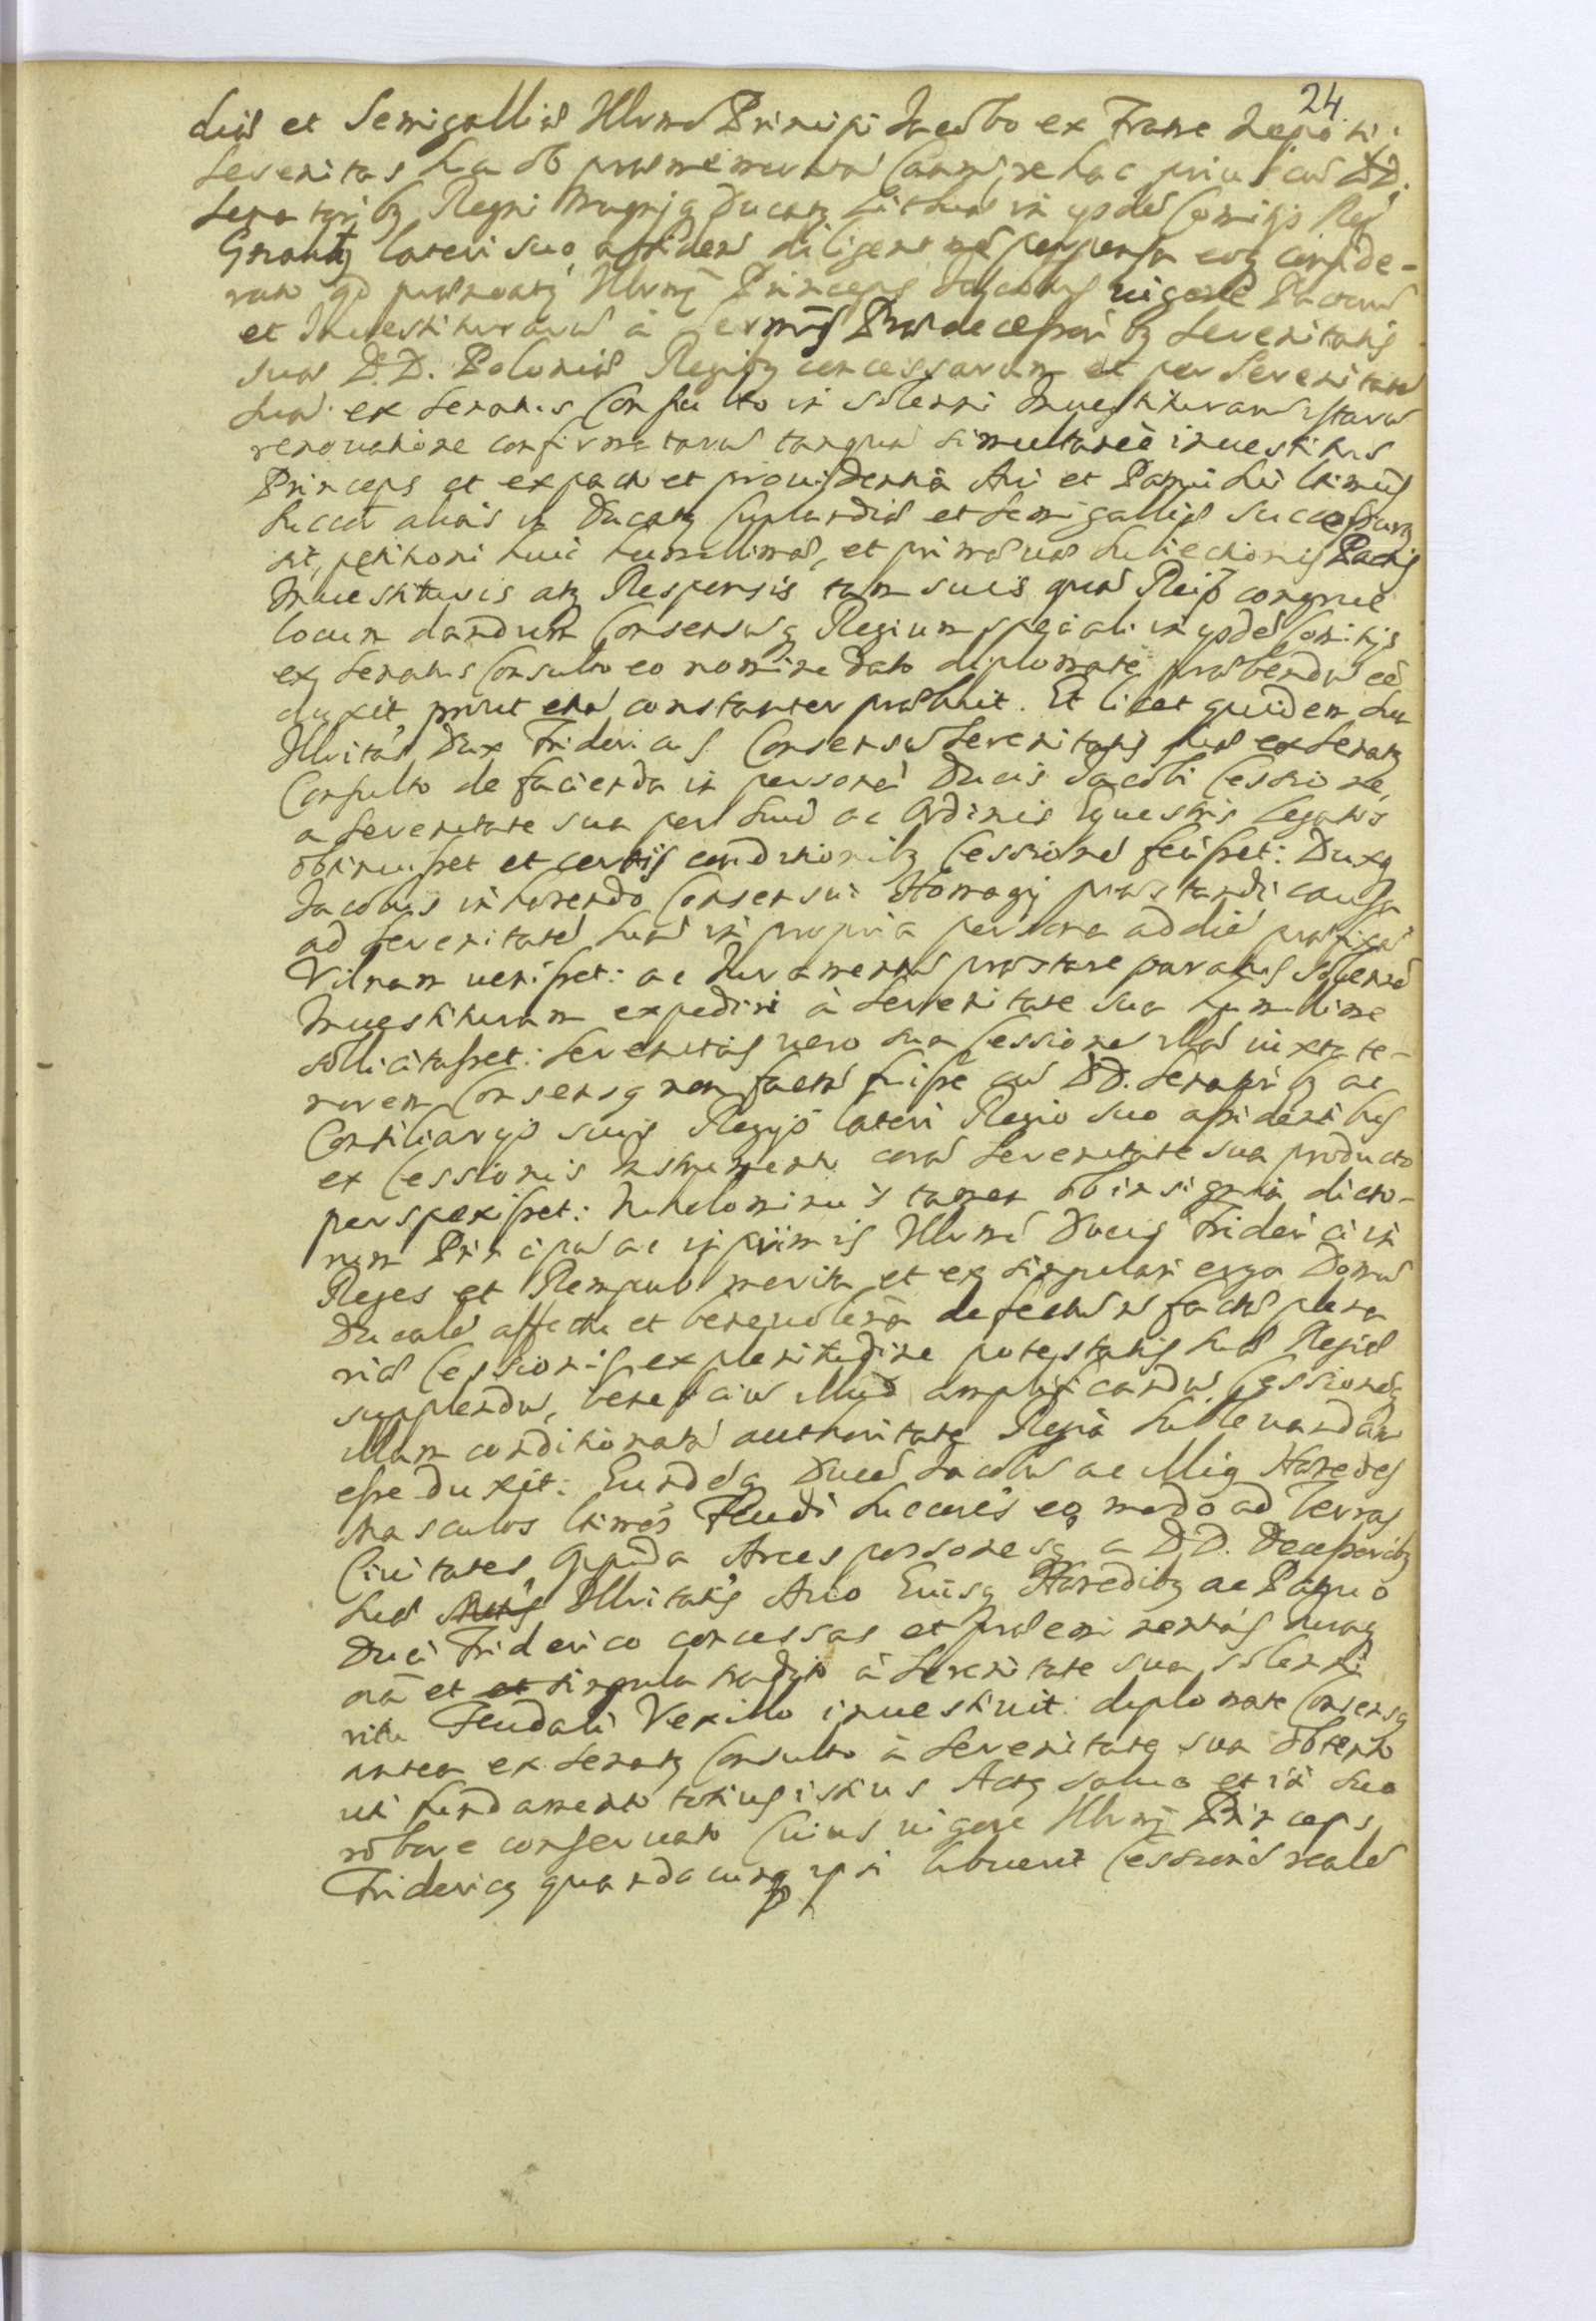 24
diae et Semigalliae Illmo Principi Jacobo ex Fratre Nepoti:
Serenitas Sua ob praememoratas Causas, re hac prius cum DD.
Senatoribq Regni Magniq Ducatq Lithuae in ijsdem Comitijs Reg
lateri suo assiden diligent perpensa eoq conside-
rato qd praenoatq Illmq Princeps Jacobus uigore Pactorum
et Inuestiturarum à Sermis Praedecessoribq Serenitatis
suae D.D. Poloniae Regibq concessarum et per Serenitatem
Suam ex Senatus Consulto in solenni Inuestiturarum istarum
renouatione confirmatarum tanquam simultaneè inuestitus
Princeps et ex pacto et prouidentia Aui et Patrui sui ltimus
Succor aliàs in Ducatq Curlandiae et Semigalliae successurq
sit, petitioni huic humillimae, et primaeuae Subiectionis Pactis
Inuestituris atq Responsis tam suis quam Reip congruè
locum dandum Consensumq Regium speciali in ijsdem Comitijs
ex Senatus Consulto eo nomine dato diplomate praebendum eê
duxit, prout etiam constanter praebuit. Et licet quidem Sua
Illritas Dux Fridericus Consensum Serenitatis suae ex Senatq
Consulto de facienda in personam Ducis Jacobi Cessione,
a Serenitate sua per suum ac Ordinis Equestris Legatos
obtinuisset et certis conditionibq Cessionem fecisset: Duxq
Jacobus inhaerendo Consensui Homagij praestandi causa
ad Serenitatem Suam in propria persona ad diem praefixam
Vilnam uenisset: ac Iuramentum praestare paratus solenne
Inuestituram expediri à Serenitate sua humillime
sollicitasset: Serenitas uero sua Cessionem illam iuxta te-
norem Consensq non factam fuisse cum DD. Senatoribq ac
Consiliarijs suis Regijs lateri Regio suo assidentibus
ex Cessionis Instrumento coram Serenitate sua producto
perspexisset: Nihilominus tamen ob insignia dicto-
rum Principum ac inprimis Illmi Ducis Friderici in
Reges et Rempub merita et ex singulari erga Domum
Ducalem affectu et beneuolentia defectum non factae plena
riae Cessionis, ex plenitudine potestatis suae Regiae
supplendum, beneficium illud amplificandum, Cessionemq
illam conditionatam authoritate Regiâ subleuandam
esse duxit: Eundemq Ducem Jacobum ac Illiq Haeredes
Masculos ltimos Feudi Succores eo modo ad Terras
Ciuitates, Oppida Arces personesq a D.D. Decessoribq
suae Illritatis Auo Eiusq Haeredibq ac Patruo
Duci Friderico concessas et praeeminentias
oia et et singula à Serenitate sua solenni
ritu Feudali Vexillo inuestiuit: diplomate Consensq
antea ex Senatq Consulto à Serenitate sua obtento
uti fundamento totius istius Actq saluo et in suo
robore conseruato Cuius uigore Illmq Princeps
Fridericq quandocunq ipsi libuerit Cessionem realem